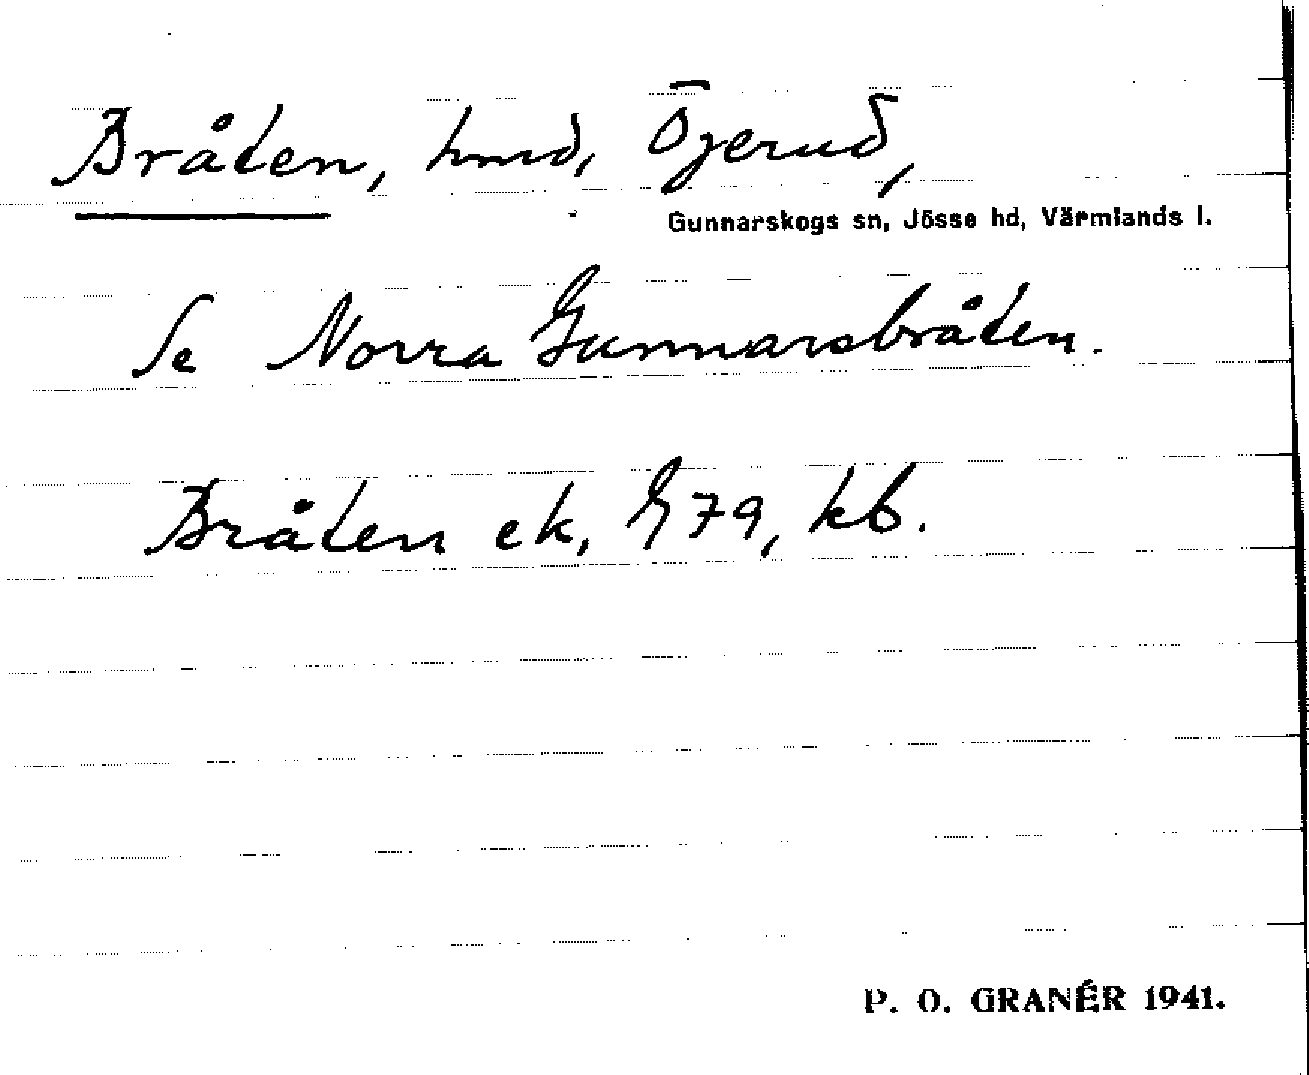 Bråten, hmd, Öjerud,
Gunnarskogs sn, Jösse hd, Värmlands l.
Se Norra Gunnarsbråten.
Bråten ek, G 79, kb.
P. O. GRANÉR 1941.